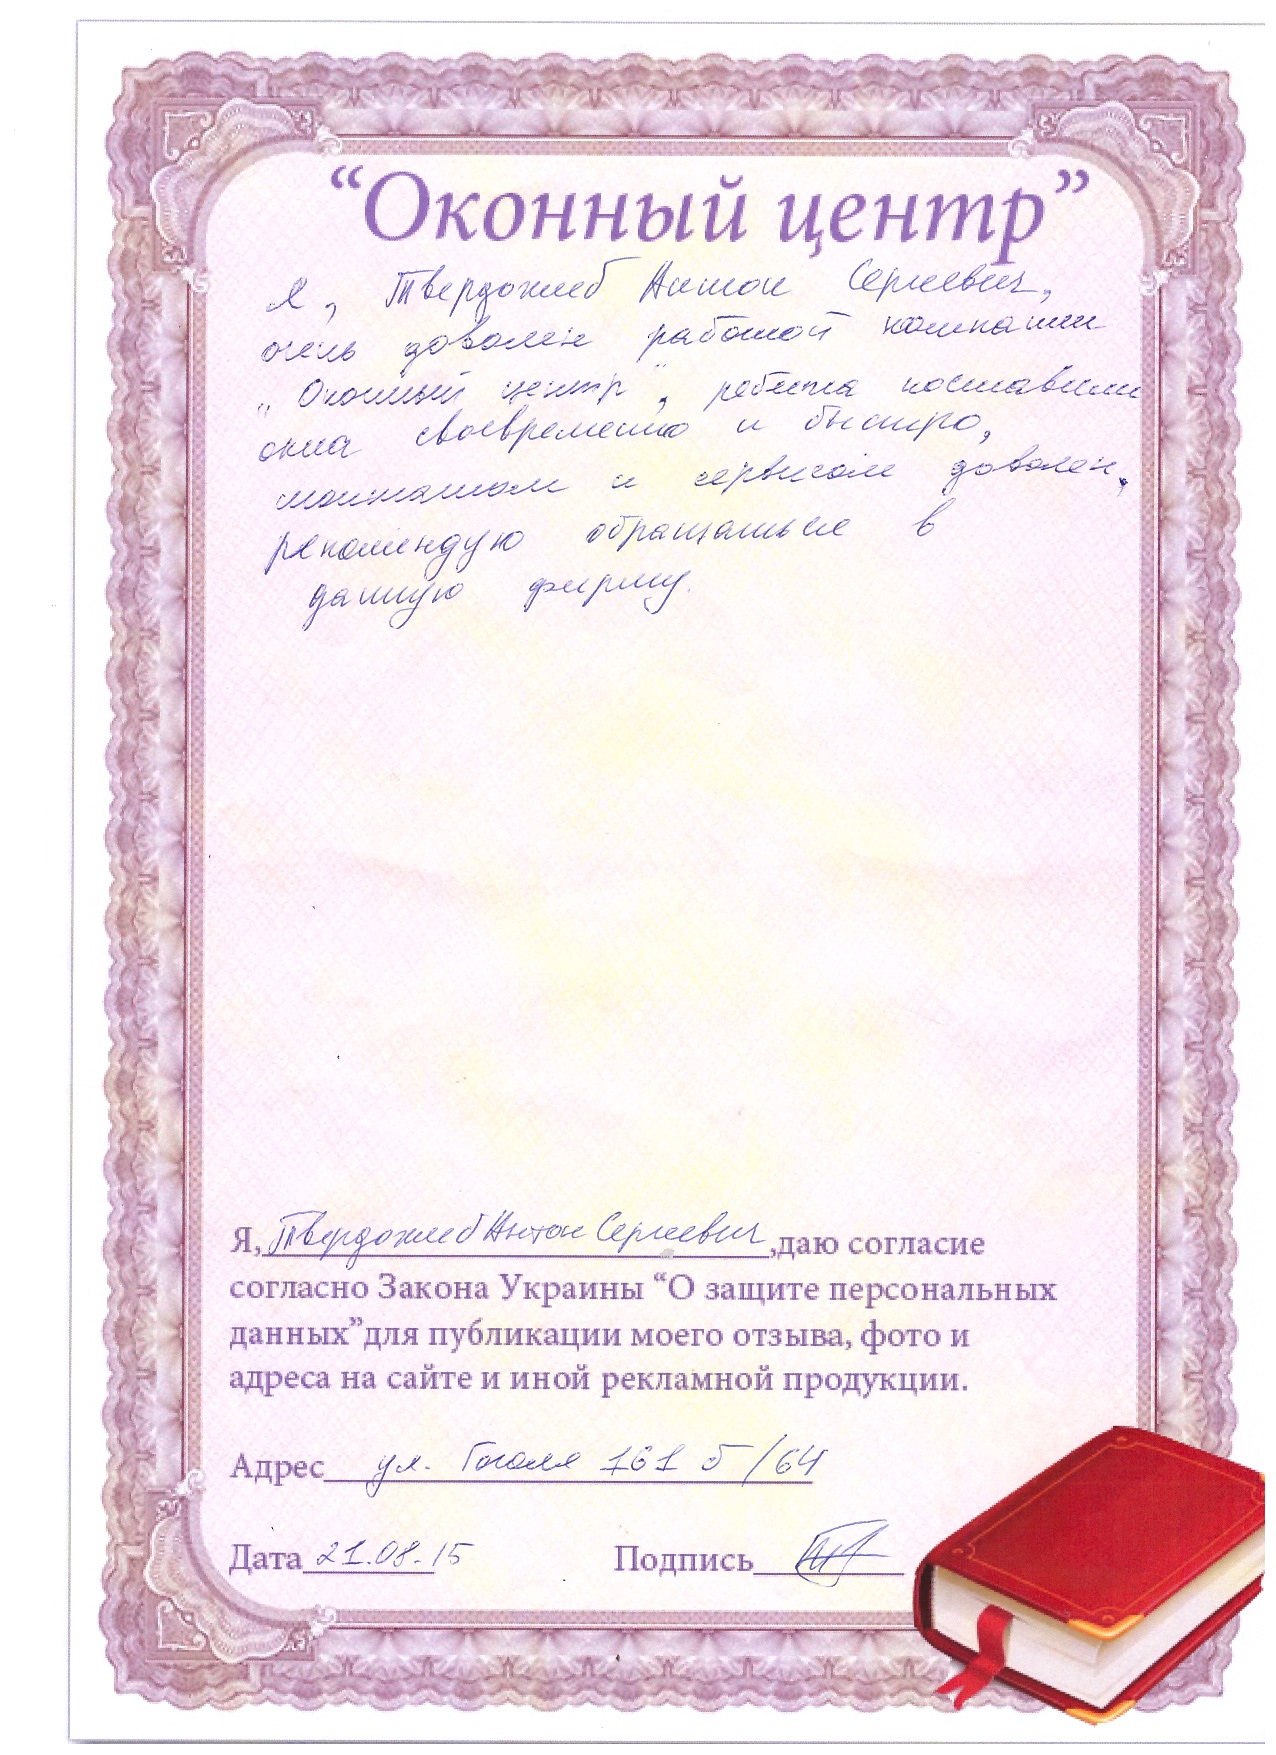 “Оконный центр”
Я, Твердохлеб Антон Сергеевич,
очень доволен работой компании
„Оконный центр“, ребята поставили
окна своевременно и быстро,
монтажом и сервисом доволен,
рекомендую обращаться в
данную фирму.
Я, Твердохлеб Антон Сергеевич,даю согласие
согласно Закона Украины “О защите персональных
данных”для публикации моего отзыва, фото и
адреса на сайте и иной рекламной продукции.
Адрес ул. Гоголя 161 б /64
Дата 21.08.15 Подпись